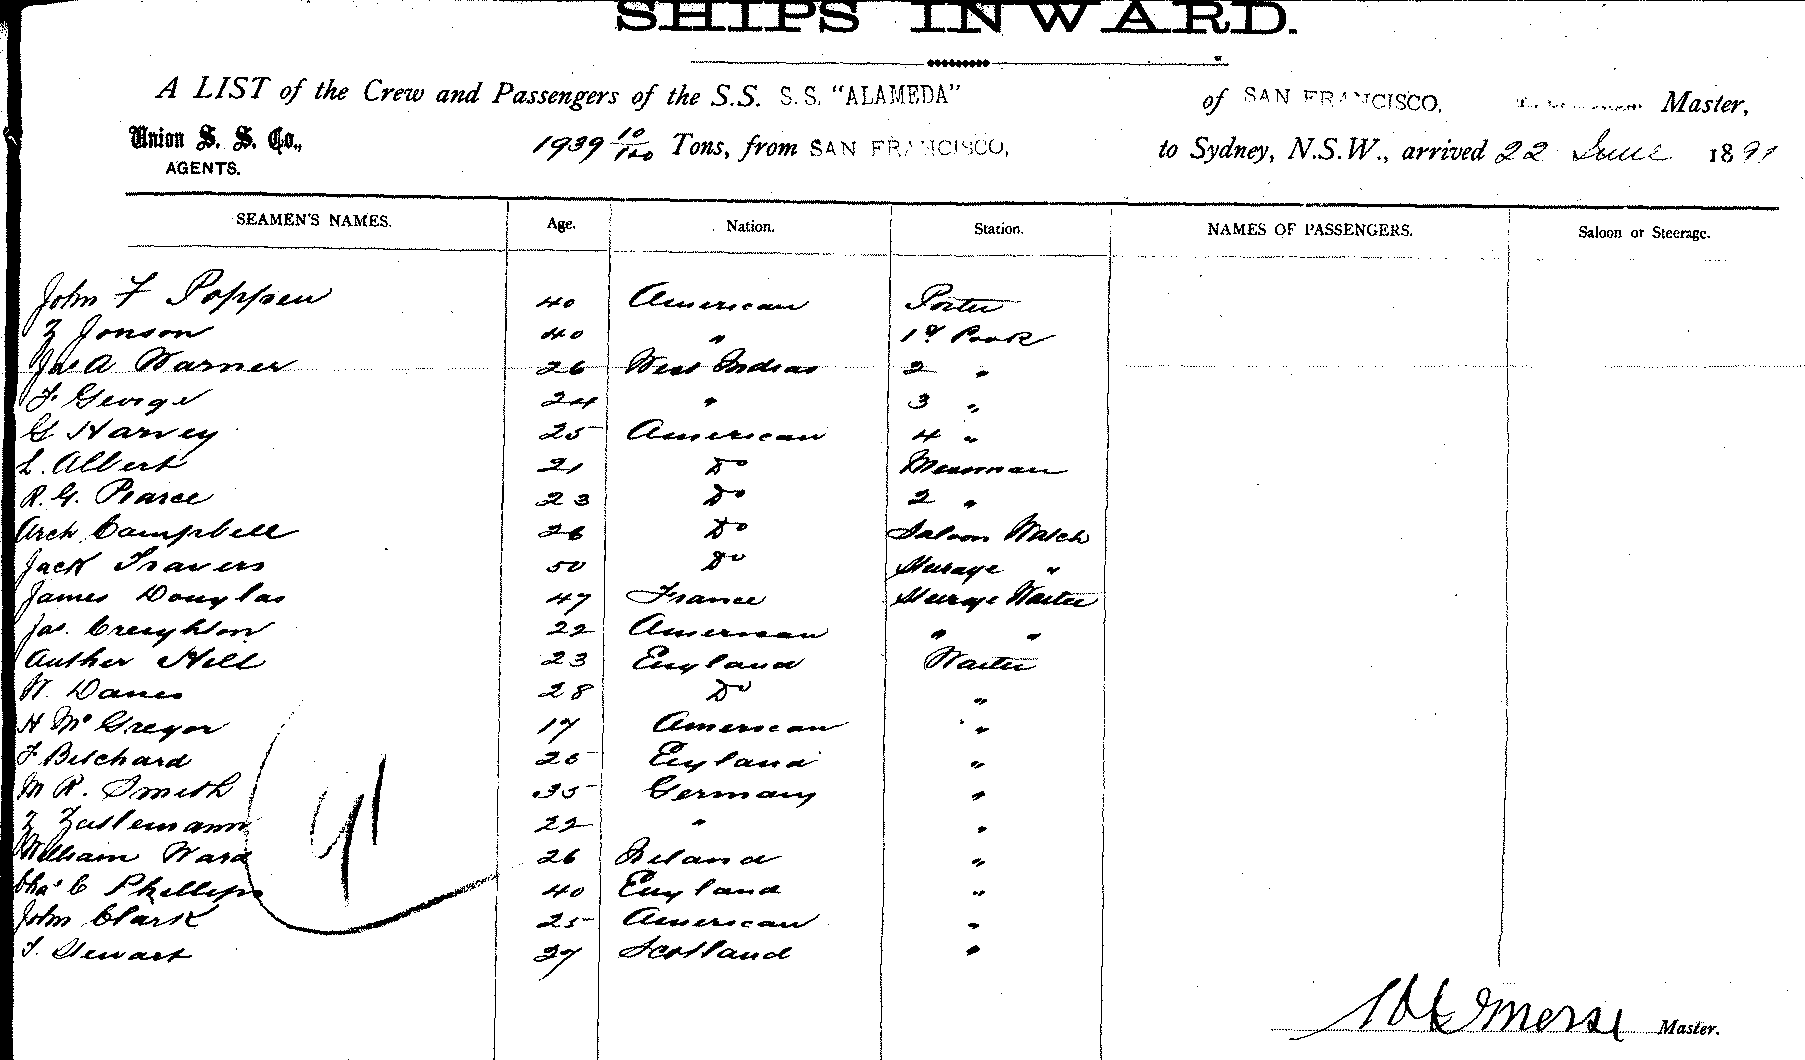 SHIPS INWARD.
A LIST of the Crew and Passengers of the S.S. S.S. "ALAMEDA" of SAN FRANCISCO, Master,
Union S. S. Co., 1939 10/100 Tons, from SAN FRANCISCO, to Sydney, N.S.W., arrived 22 June 1891
AGENTS.
SEAMEN'S NAMES. Age. Nation. Station. NAMES OF PASSENGERS. Saloon or Steerage.
John F Poppen 40 American Porter
Z Jonson 40 " 1st Cook
Jas A Warner 26 West Indias 2 "
F George 24 " 3 "
G Harvey 25 American 4 "
L. Albert 21 Do Messman
R. G. Pearce 23 Do 2 "
Arch Campbell 26 Do Saloon Watch
Jack Travers 50 Do Sterage "
James Douglas 47 France Sterage Waiter
Jas. Creighton 22 American " "
Auther Hill 23 England Waiter
W. Danes 28 Do "
H McGregor 17 American "
F Belchard 25 England "
M R. Smith 35 Germany "
Z Zastemann 22 " "
William Ward 26 Ireland "
Chas C Phillips 40 England "
John Clark 25 American "
T. Stewart 27 Scotland "
91
Morse Master.